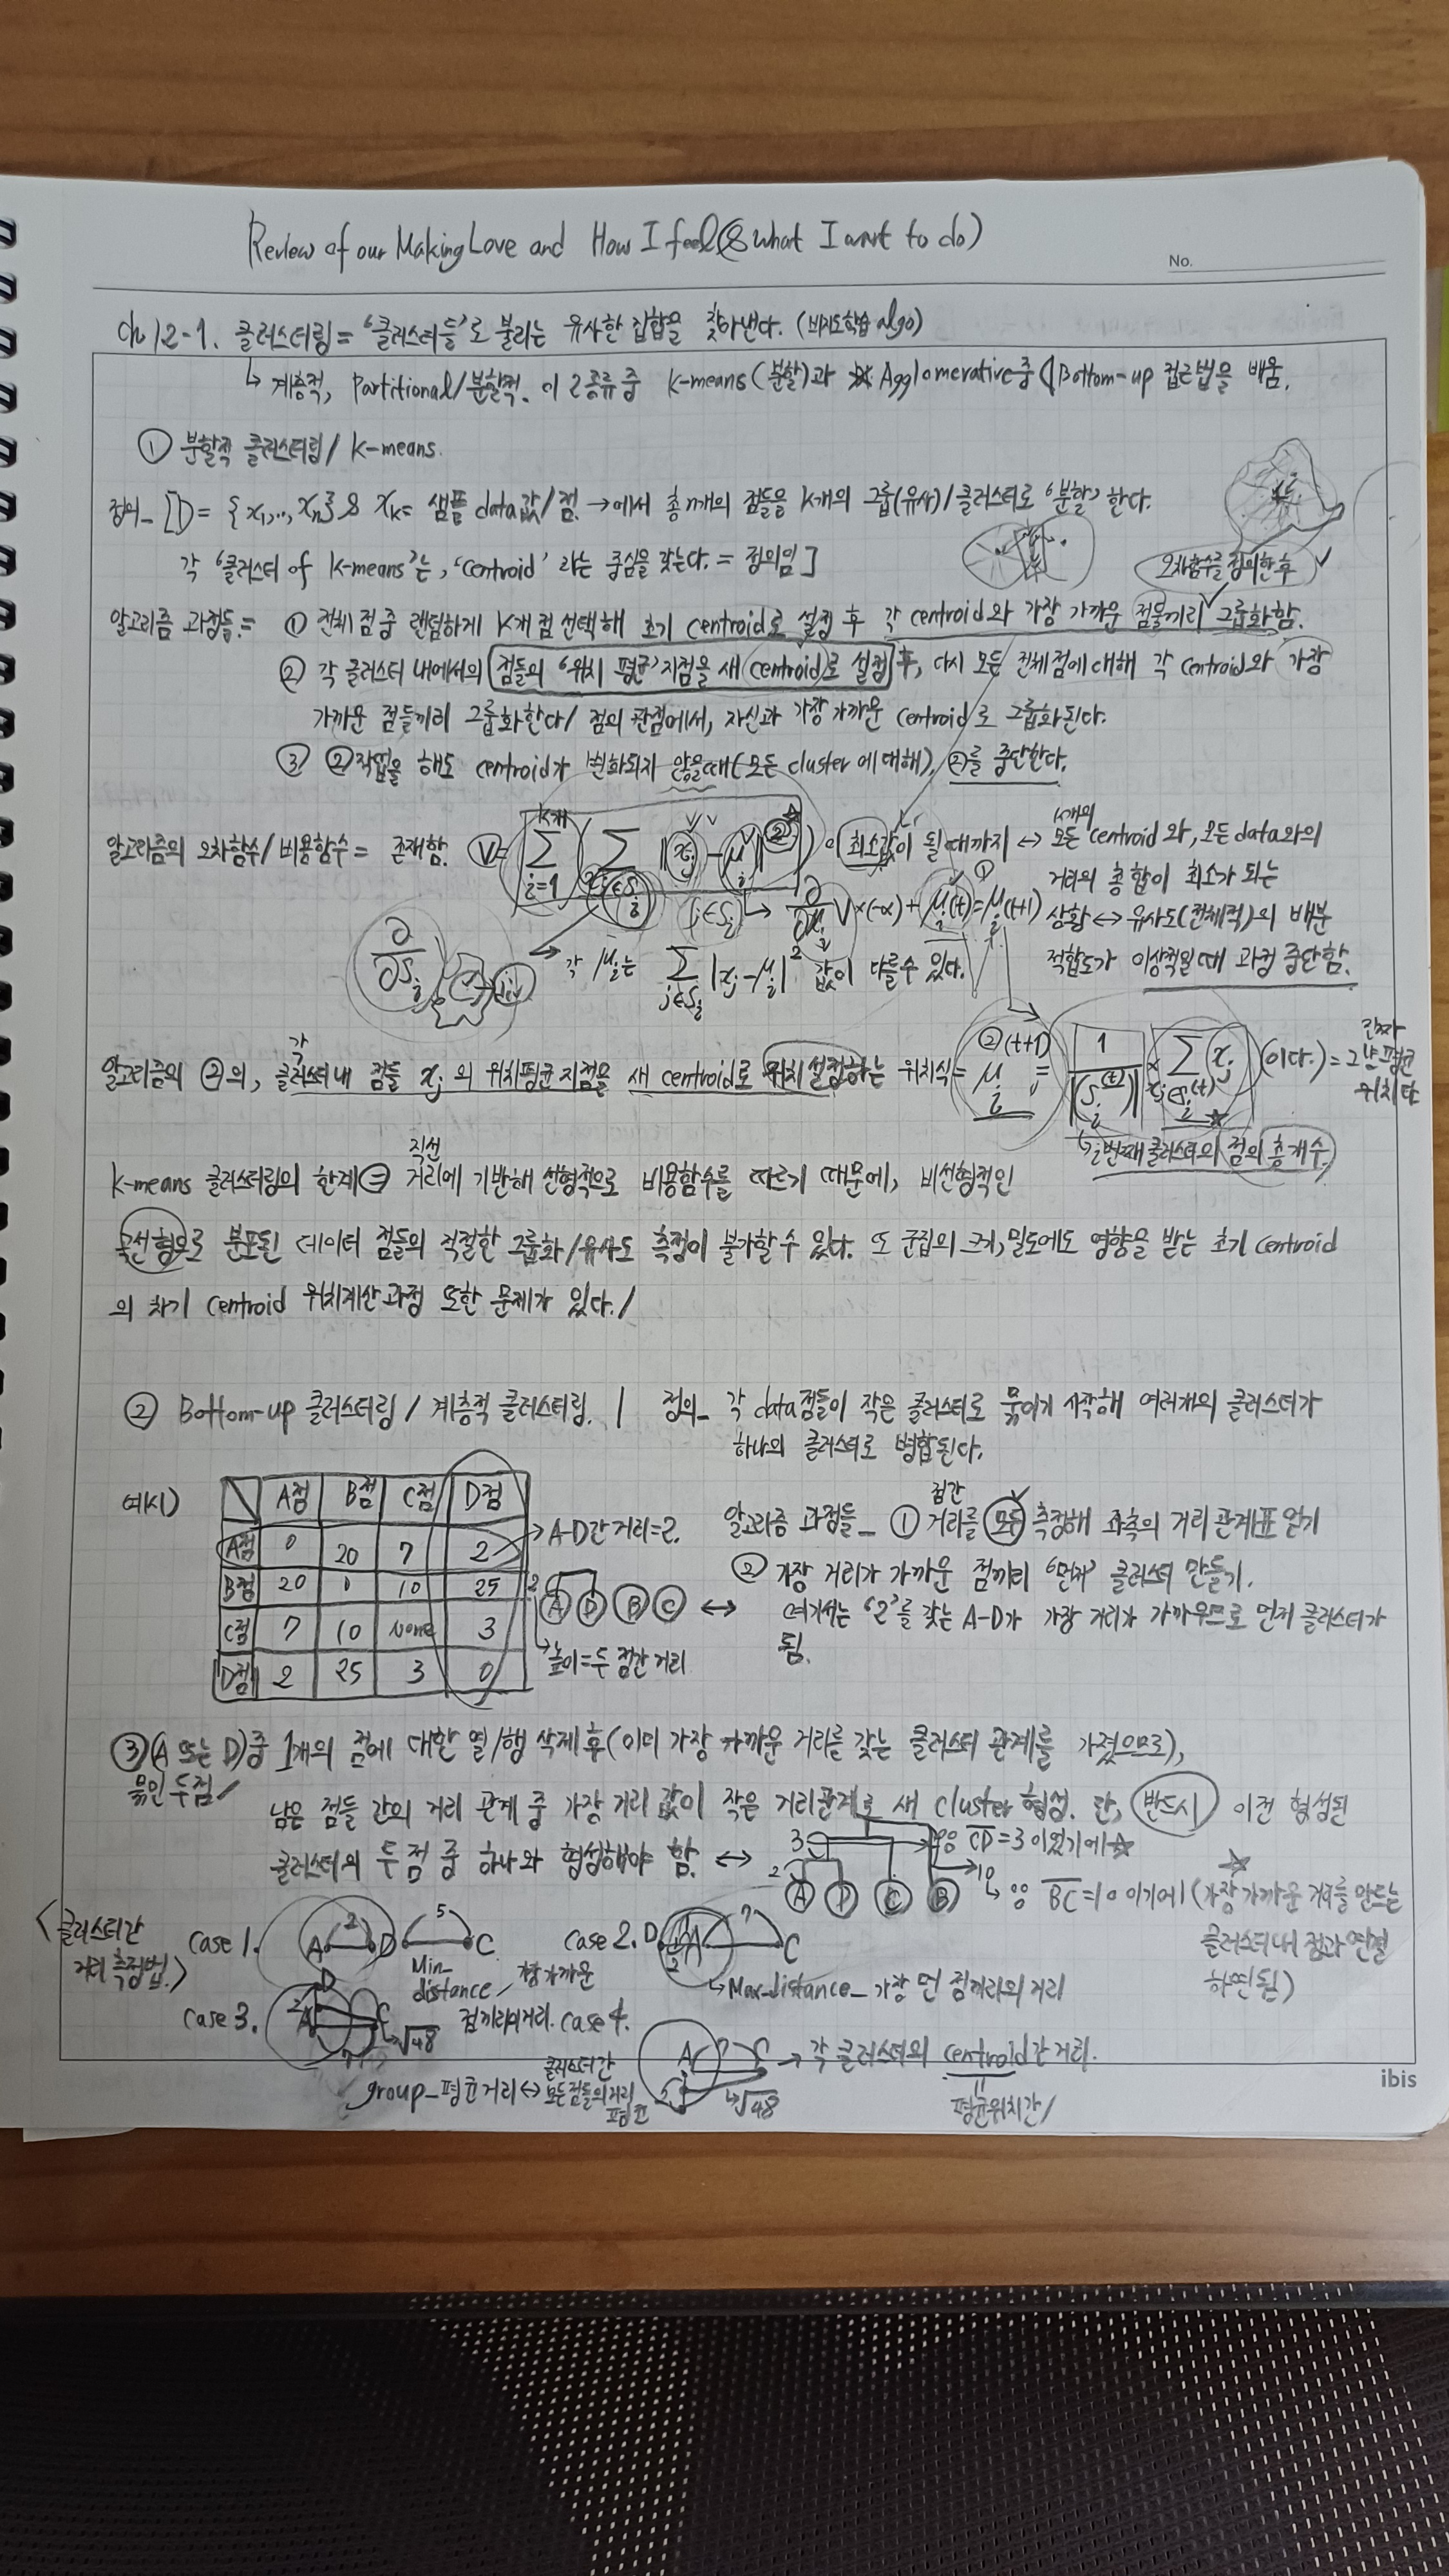 Review of our Making Love and How I feel(& what I want to do)
No.
ch 12-1. 클러스터링 = '클러스터들'로 불리는 유사한 집합을 찾아낸다. (비지도학습 algo)
↳ 계층적, Partitional/분할적. 이 2종류 중 K-means(분할)과 Agglomerative중 Bottom-up 접근법을 배움.
① 분할적 클러스터링/ K-means.
정의_ [D = {x₁,..,xₙ} & xₖ= 샘플 data값/점. → 에서 총 n개의 점들을 K개의 그룹(유사)/클러스터로 '분할' 한다.
각 '클러스터 of K-means'는, 'centroid' 라는 중심을 갖는다. = 정의임]
오차함수를 정의한 후 ✓
알고리즘 과정들.= ① 전체 점 중 랜덤하게 K개 점 선택해 초기 centroid로 설정 후 각 centroid와 가장 가까운 점들끼리 그룹화함.
② 각 클러스터 내에서의 점들의 '위치 평균' 지점을 새 centroid로 설정 후, 다시 모든 전체점에 대해 각 centroid와 가장
가까운 점들끼리 그룹화한다/ 점의 관점에서, 자신과 가장 가까운 centroid로 그룹화된다.
③ ②작업을 해도 centroid가 변화되지 않을때(모든 cluster에 대해), ②를 중단한다.
알고리즘의 오차함수/비용함수 = 존재함. V= Σ i=1 K개 ( Σ xⱼ∈Sᵢ |xⱼ-μᵢ|² ) 이 최소값이 될 때까지 ↔ K개의 모든 centroid와, 모든 data와의
거리의 총합이 최소가 되는
∂/∂μᵢ V×(-α) + μᵢ(t) = μᵢ(t+1)
상황 ↔ 유사도(전체적)의 배분
각 μᵢ는 Σ j∈Sᵢ |xⱼ-μᵢ|² 값이 다를수 있다.
적합도가 이상적일 때 과정 중단함.
알고리즘의 ②의, 각 클러스터내 점들 xⱼ의 위치평균지점을 새 centroid로 위치설정하는 위치식= μᵢ(t+1) = 1/|Sᵢ(t)| × Σ xⱼ∈Sᵢ(t) xⱼ (이다.) = 진짜 그냥 평균 위치다
↳ i번째 클러스터의 점의 총개수.
K-means 클러스터링의 한계 = 직선 거리에 기반해 선형적으로 비용함수를 따르기 때문에, 비선형적인
곡선형으로 분포된 데이터 점들의 적절한 그룹화/유사도 측정이 불가할 수 있다. 또 군집의 크기, 밀도에도 영향을 받는 초기 centroid
의 차기 centroid 위치계산과정 또한 문제가 있다./
② Bottom-up 클러스터링 / 계층적 클러스터링. | 정의_ 각 data점들이 작은 클러스터로 묶이기 시작해 여러개의 클러스터가
하나의 클러스터로 병합된다.
예시)
A점 B점 C점 D점
A점 0 20 7 2
B점 20 0 10 25
C점 7 10 None 3
D점 2 25 3 0
→ A-D간 거리=2.
2 A D B C ↔
↳ 높이=두 점간 거리
알고리즘 과정들_ ① 점간 거리를 모두 측정해 좌측의 거리 관계표 얻기
② 가장 거리가 가까운 점끼리 '먼저' 클러스터 만들기.
여기서는 '2'를 갖는 A-D가 가장 거리가 가까우므로 먼저 클러스터가
됨.
③(A 또는 D)중 1개의 점에 대한 열/행 삭제 후(이미 가장 가까운 거리를 갖는 클러스터 관계를 가졌으므로),
묶인 두점/
남은 점들 간의 거리 관계 중 가장 거리 값이 작은 거리관계로 새 cluster 형성. 단, 반드시 이전 형성된
클러스터의 두 점 중 하나와 형성해야 함. ↔
3 2 A D C B 10
∵ CD=3 이었기에 ☆
↳ ∵ BC=10 이기에 (가장 가까운 거리를 만드는
클러스터내 점과 연결
하면 됨)
<클러스터간
거리 측정법.>
case 1. A 2 D 5 C
Min_distance / 가장 가까운
점끼리의거리.
case 2. D A 7 C
2
↳ Max_distance_ 가장 먼 점끼리의 거리
case 3. D 2 A C √48 7
group_평균거리 ↔ 클러스터간 모든점들의거리 평균
case 4. A 7 C 2 √48
→ 각 클러스터의 centroid간 거리.
평균위치간/
ibis